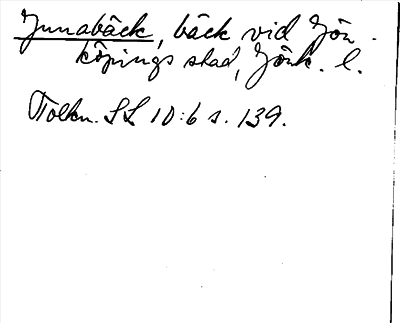 Junabäck, bäck vid Jön-
köpings stad, Jönk. l.
Tolkn. SL 10:6 s. 139.